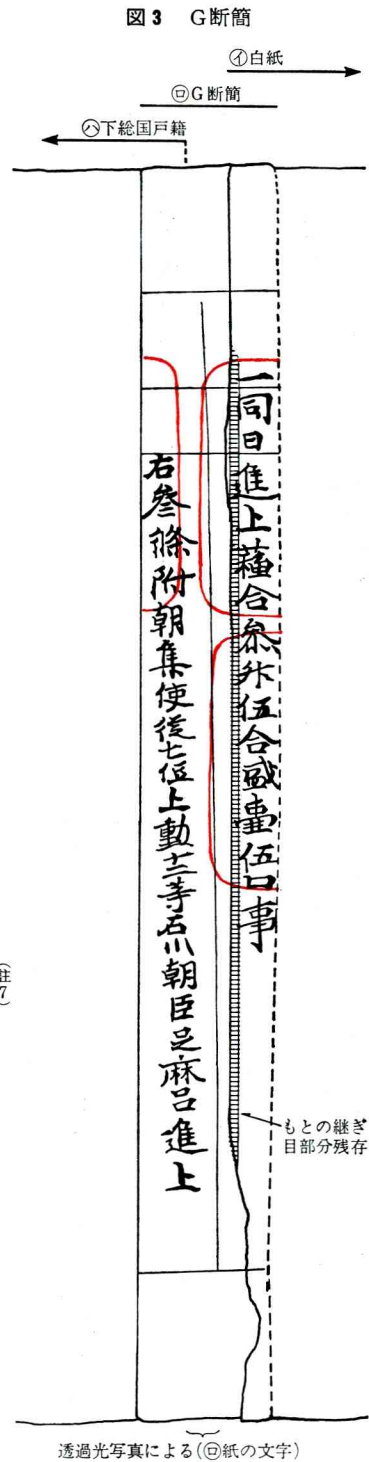 図3 G断簡
㋑白紙
㋺G断簡
㋩下総国戸籍
一同日進上蘓合参升伍合盛壷伍口事
右叄條附朝集使従七位上勳十二等石川朝臣足麻呂進上
(註7)
もとの継ぎ
目部分残存
透過光写真による(㋺紙の文字)